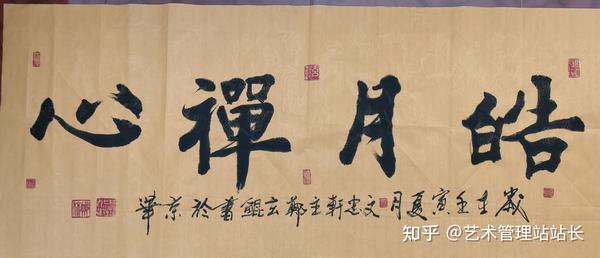 皓月禪心
歲在壬寅夏月文忠軒主鄭玄鯤書於京華
知乎 @艺术管理站站长